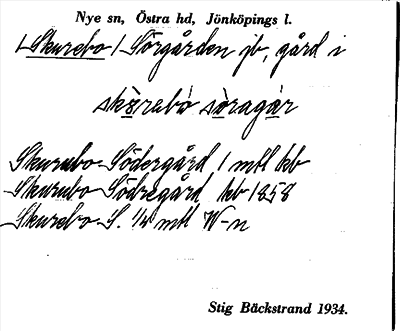 Nye sn, Östra hd, Jönköpings l.
/Skurebo/Sörgården jb, gård i
skörebò sö̀ragà̱r
Skurebo Södergård 1 mtl kb
Skurubo Södregård, kb 1858
Skurebo S. 1/4 mtl W-n
Stig Bäckstrand 1934.